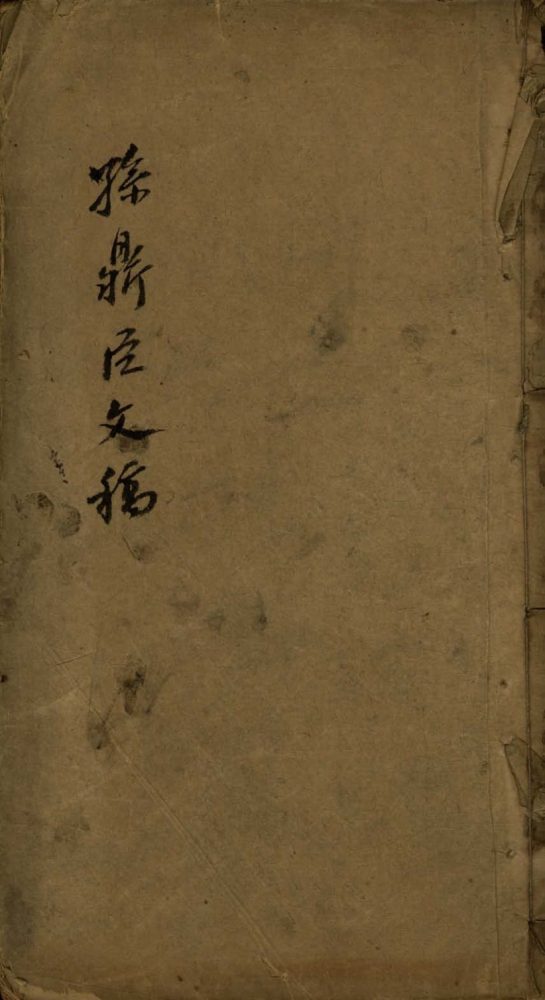 孫鼎臣文稿